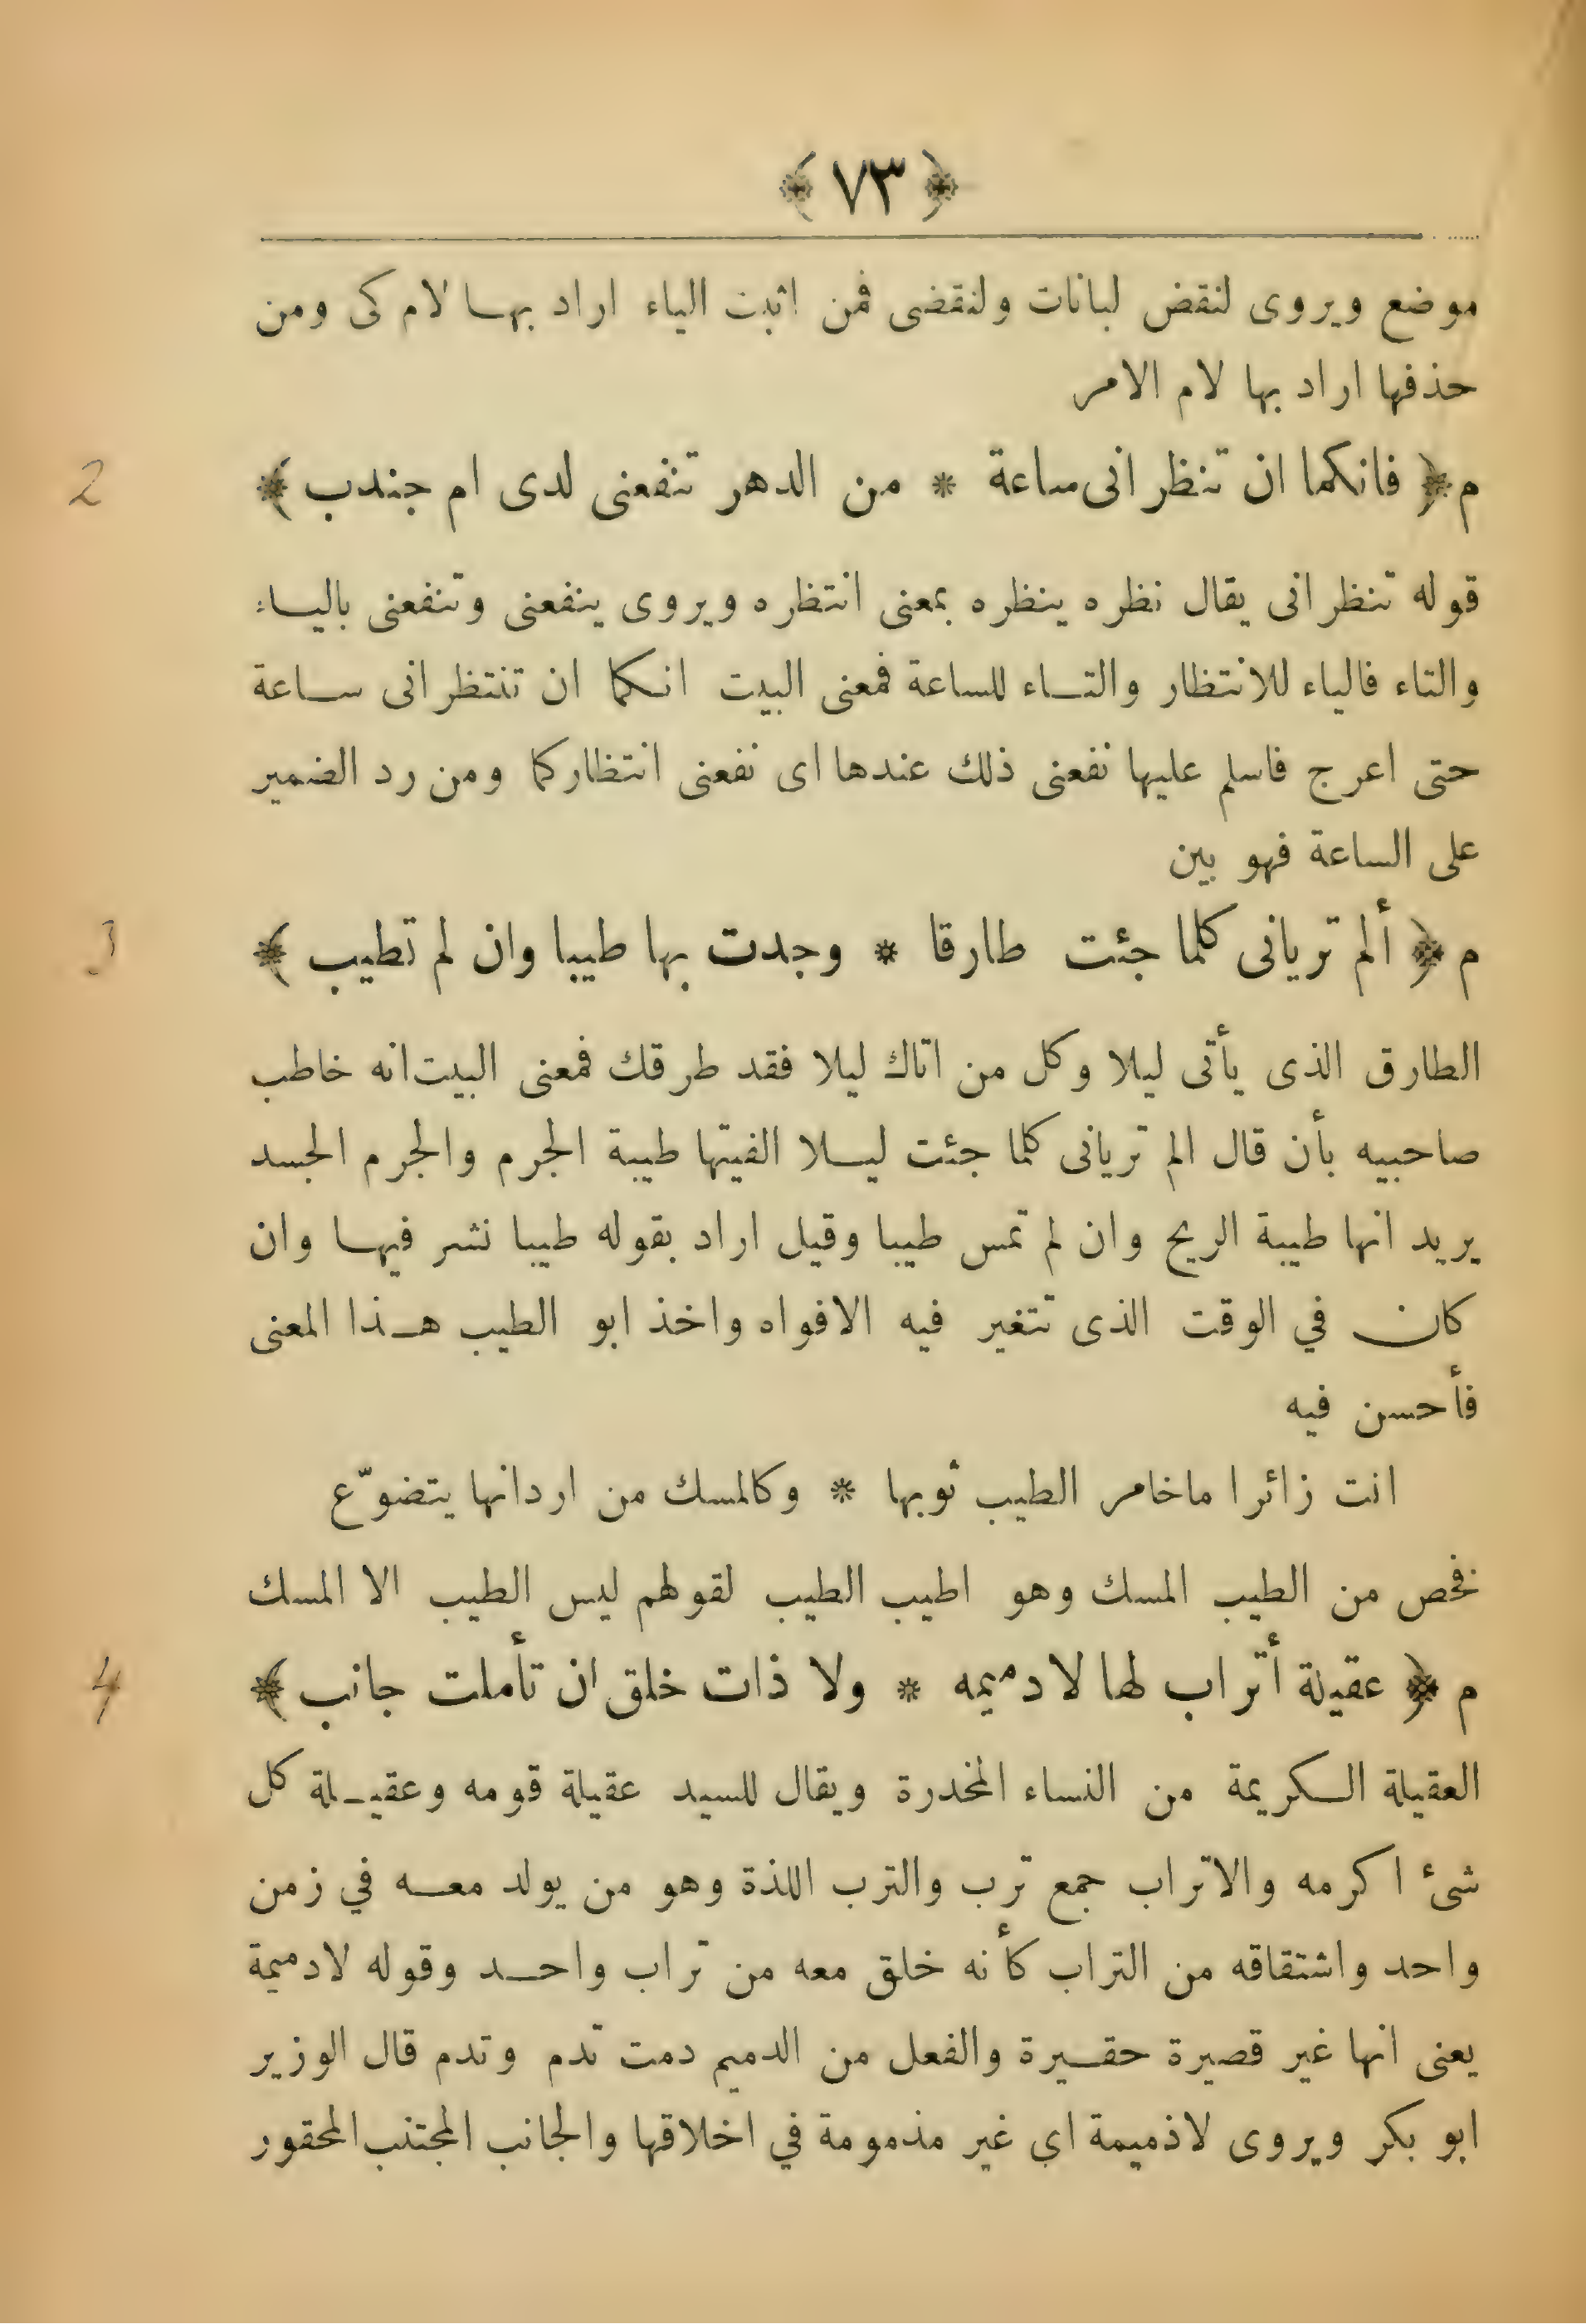 ﴿ ٧٣ ﴾
موضع ويروى لنقض لبانات ولنقضى فمن اثبت الياء اراد بهـا لام كى ومن
حذفها اراد بها لام الامر
2
م ﴿ فانكما ان تنظرانى ساعة * من الدهر تنفعنى لدى ام جندب ﴾
قوله تنظرانى يقال نظره ينظره بمعنى انتظره ويروى ينفعنى وتنفعنى باليـاء
والتاء فالياء للانتظار والتـاء للساعة فمعنى البيت انـكما ان تنتظرانى سـاعة
حتى اعرج فاسلم عليها نفعنى ذلك عندها اى نفعنى انتظاركما ومن رد الضمير
على الساعة فهو بين
3
م ﴿ ألم تريانى كلما جئت طارقا * وجدت بها طيبا وان لم تطيب ﴾
الطارق الذى يأتى ليلا وكل من اتاك ليلا فقد طرقك فمعنى البيت انه خاطب
صاحبيه بأن قال الم تريانى كلما جئت ليـلا الفيتها طيبة الجرم والجرم الجسد
يريد انها طيبة الريح وان لم تمس طيبا وقيل اراد بقوله طيبا نشر فيهـا وان
كان في الوقت الذى تتغير فيه الافواه واخذ ابو الطيب هـذا المعنى
فأحسن فيه
انت زائرا ماخامر الطيب ثوبها * وكالمسك من اردانها يتضوّع
فخص من الطيب المسك وهو اطيب الطيب لقولهم ليس الطيب الا المسك
4
م ﴿ عقيلة أتراب لها لا دميمه * ولا ذات خلق ان تأملت جانب ﴾
العقيلة الـكريمة من النساء المخدرة ويقال للسيد عقيلة قومه وعقيـلة كل
شئ اكرمه والاتراب جمع ترب والترب اللذة وهو من يولد معـه في زمن
واحد واشتقاقه من التراب كأنه خلق معه من تراب واحـد وقوله لادميمة
يعنى انها غير قصيرة حقـيرة والفعل من الدميم دمت تدم وتدم قال الوزير
ابو بكر ويروى لاذميمة اى غير مذمومة في اخلاقها والجانب المجتنب المحقور